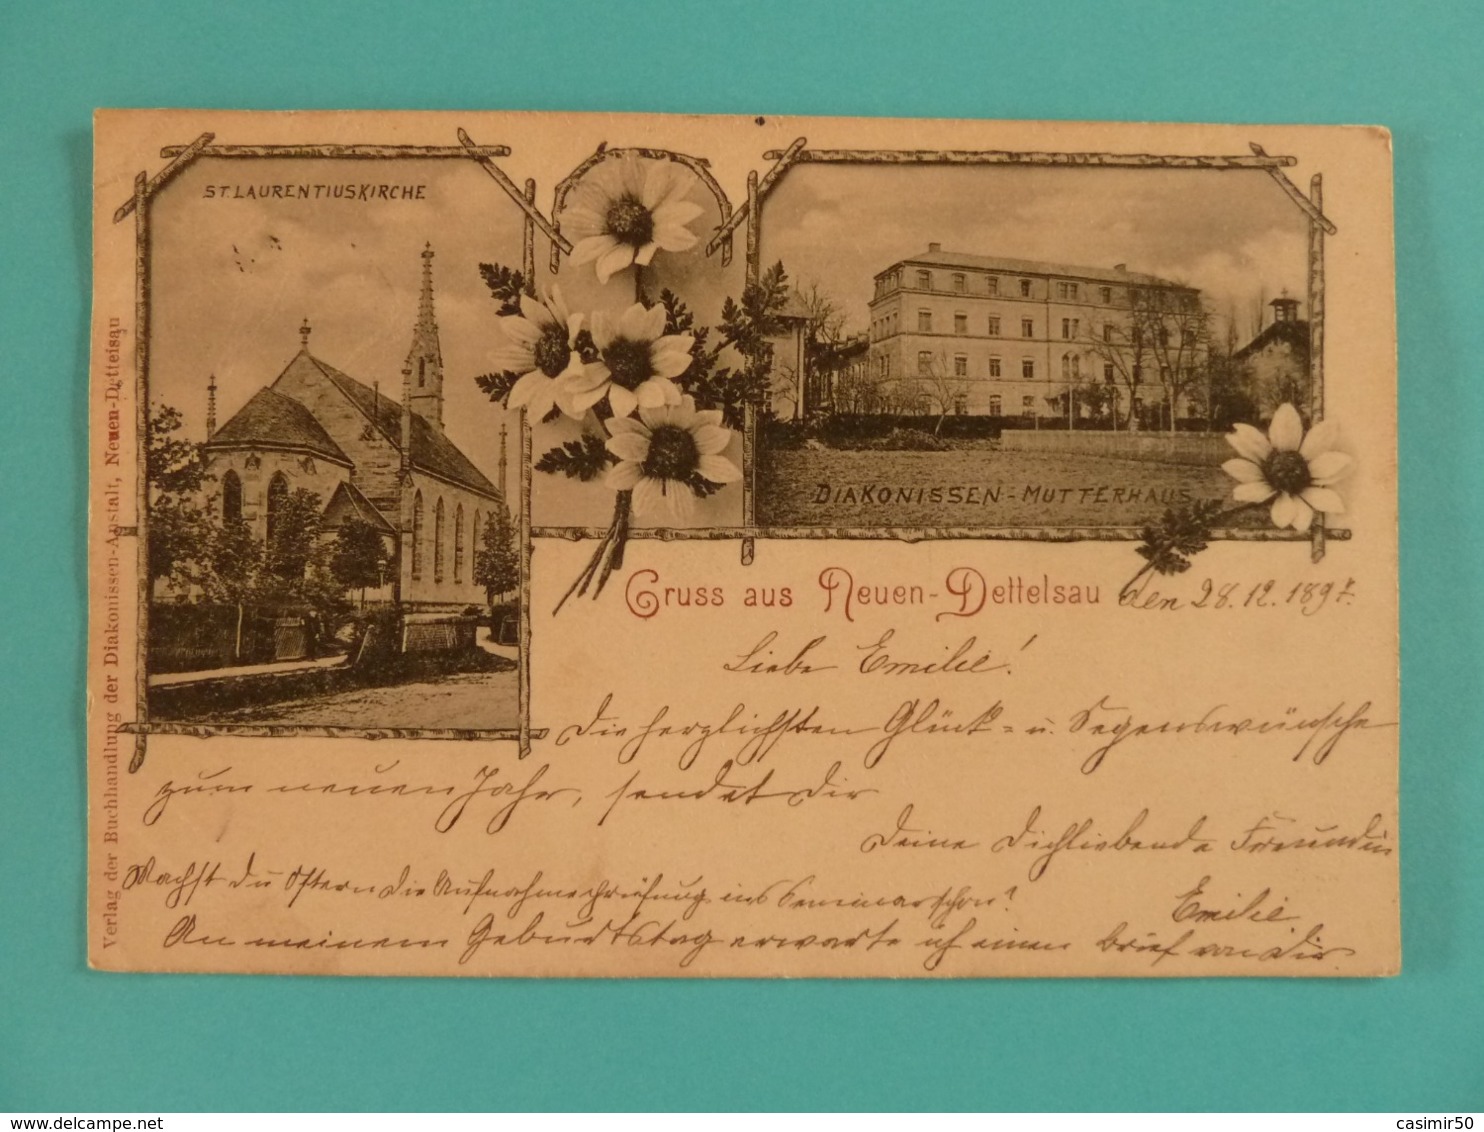 ST. LAURENTIUSKIRCHE
DIAKONISSEN-MUTTERHAUS
Verlag der Buchhandlung der Diakonissen-Anstalt, Neuen-Dettelsau
Gruss aus Neuen-Dettelsau den 28.12.1897.
Liebe Emilie!
Die herzlichsten Glück- u. Segenswünsche
zum neuen Jahr, sendet Dir
Deine Dichliebende Freundin
Emilie
Machst du Ostern die Aufnahmeprüfung ins Seminar schon?
An meinem Geburtstag erwarte ich einen Brief von Dir
www.delcampe.net
casimir50